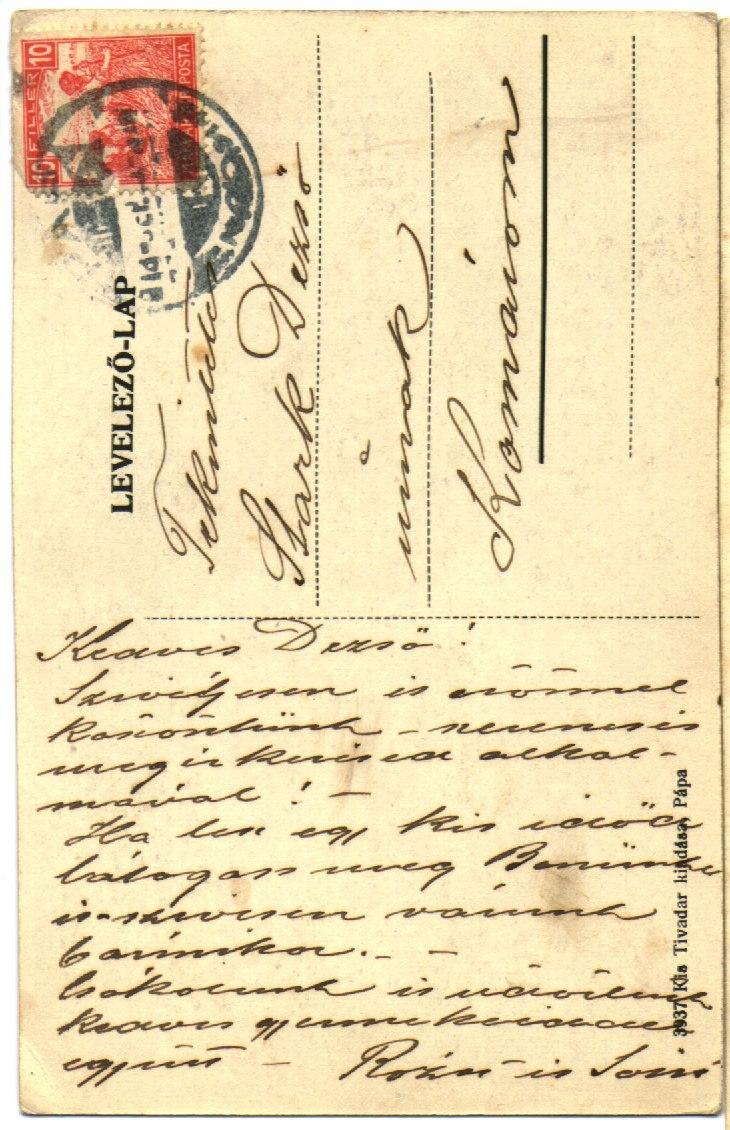 10 FILLÉR 10
POSTA
LEVELEZŐ-LAP
Tekintetes
Stark Dezső
úrnak
Komárom
Kedves Dezső!
Szivélyesen és örömmel
köszöntünk – szerencsés
megérkezésed alkal-
mával! –
Ha lesz egy kis időd
látogass meg Bennünket
is – szivesen várunk
bármikor. – –
Csókolunk és üdvözlünk
kedves gyermekeiddel
együtt –
3937. Kis Tivadar kiadása, Pápa